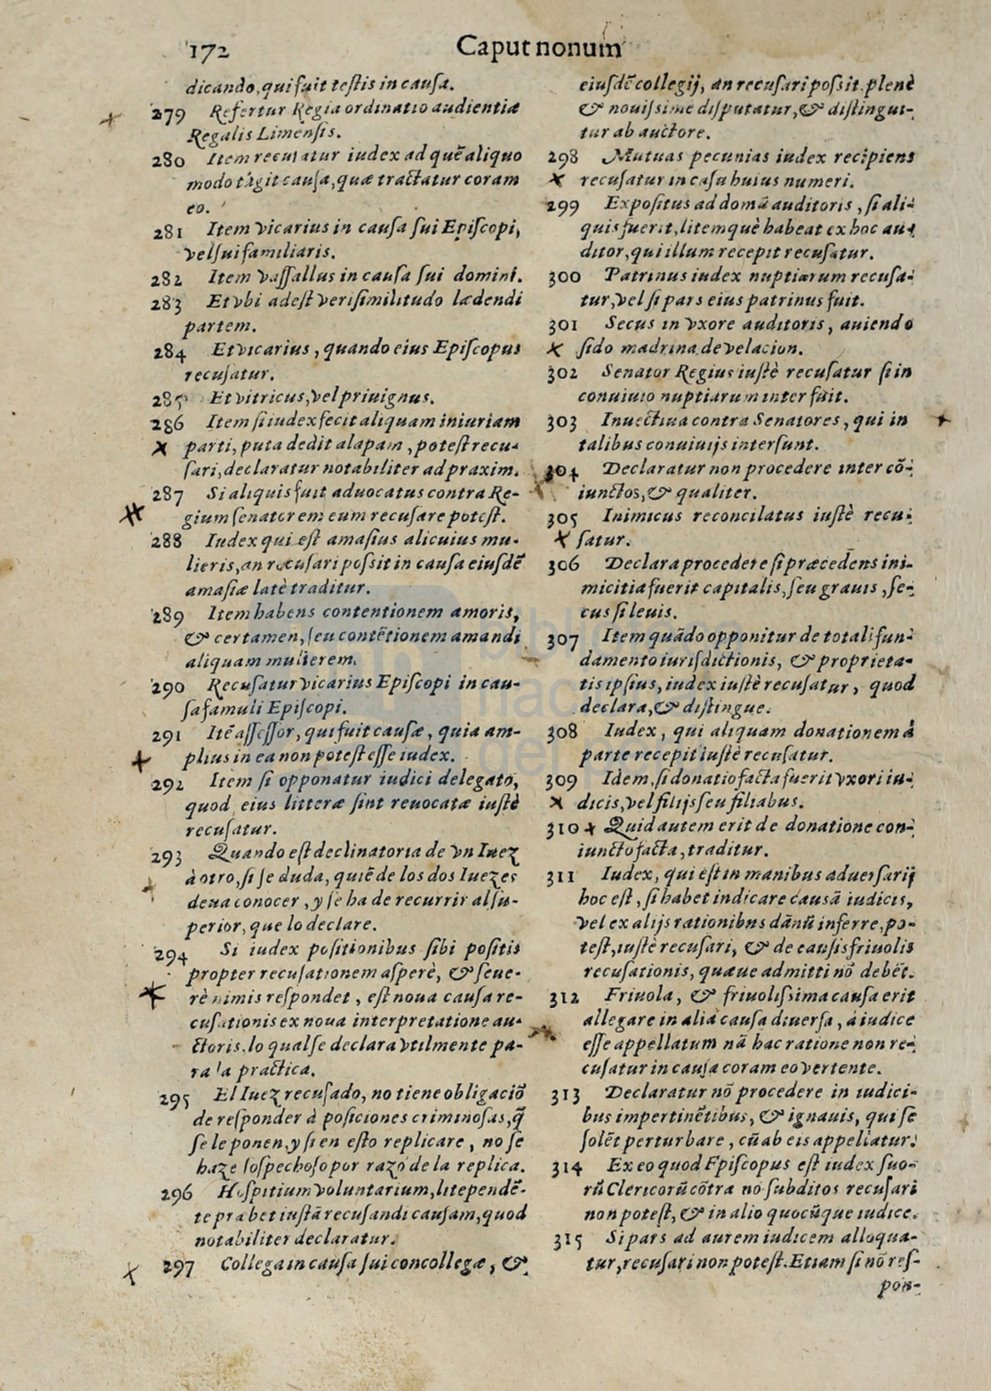 172
Caput nonum
dicando, qui fuit testis in causa.
279 Refertur Regia ordinatio audientiæ
Regalis Limensis.
280 Item recusatur iudex ad quē aliquo
modo tāgit causa, quæ tractatur coram
eo.
281 Item vicarius in causa sui Episcopi,
vel sui familiaris.
282 Item vassallus in causa sui domini.
283 Et vbi adest verisimilitudo lædendi
partem.
284 Et vicarius, quando eius Episcopus
recusatur.
285 Et vitricus, vel priuignus.
286 Item si iudex fecit aliquam iniuriam
parti, puta dedit alapam, potest recu-
sari, declaratur notabiliter ad praxim.
287 Si aliquis fuit aduocatus contra Re-
gium senatorem eum recusare potest.
288 Iudex qui est amasius alicuius mu-
lieris, an recusari possit in causa eiusdē
amasiæ latè traditur.
289 Item habens contentionem amoris,
& certamen, seu contētionem amandi
aliquam mulierem.
290 Recusatur vicarius Episcopi in cau-
sa famuli Episcopi.
291 Itē assessor, qui fuit causæ, quia am-
plius in ea non potest esse iudex.
292 Item si opponatur iudici delegato,
quod eius litteræ sint reuocatæ iustè
recusatur.
293 Quando est declinatoria de vn Iuez
à otro, si se duda, quiē de los dos Iuezes
deua conocer, y se ha de recurrir al su-
perior, que lo declare.
294 Si iudex positionibus sibi positis
propter recusationem asperè, & seue-
rè nimis respondet, est noua causa re-
cusationis ex noua interpretatione au-
ctoris. lo qual se declara vtilmente pa-
ra la practica.
295 El Iuez recusado, no tiene obligaciō
de responder à posiciones criminosas, q̄
se le ponen, y si en esto replicare, no se
haze sospechoso por razō de la replica.
296 Hospitium voluntarium, lite pendē-
te præbet iustā recusandi causam, quod
notabiliter declaratur.
297 Collega in causa sui concollegæ, &
eiusdē collegij, an recusari possit. plenè
& nouissime disputatur, & distingui-
tur ab auctore.
298 Mutuas pecunias iudex recipiens
recusatur in casu huius numeri.
299 Expositus ad domū auditoris, si ali-
quis fuerit, litemquè habeat ex hoc au-
ditor, qui illum recepit recusatur.
300 Patrinus iudex nuptiarum recusa-
tur, vel si pars eius patrinus fuit.
301 Secus in vxore auditoris, auiendo
sido madrina de velacion.
302 Senator Regius iustè recusatur si in
conuiuio nuptiarum interfuit.
303 Inuectiua contra Senatores, qui in
talibus conuiuijs intersunt.
304 Declaratur non procedere inter cō-
iunctos, & qualiter.
305 Inimicus reconcilatus iustè recu-
satur.
306 Declara procedere si præcedens ini-
micitia fuerit capitalis, seu grauis, se-
cus si leuis.
307 Item quādo opponitur de totali fun-
damento iurisdictionis, & proprieta-
tis ipsius, iudex iustè recusatur, quod
declara, & distingue.
308 Iudex, qui aliquam donationem à
parte recepit iustè recusatur.
309 Idem, si donatio facta fuerit vxori iu-
dicis, vel filijs seu filiabus.
310 Quid autem erit de donatione con-
iuncto facta, traditur.
311 Iudex, qui est in manibus aduersarij
hoc est, si habet indicare causā iudicis,
vel ex alijs rationibns dānū inferre, po-
test, iustè recusari, & de causis friuolis
recusationis, quæue admitti nō debēt.
312 Friuola, & friuolissima causa erit
allegare in aliā causa diuersa, à iudice
esse appellatum nā hac ratione non re-
cusatur in causa coram eo vertente.
313 Declaratur nō procedere in iudici-
bus impertinētibus, & ignauis, qui se
solēt perturbare, cū ab eis appellatur.
314 Ex eo quod Episcopus est iudex suo-
rū Clericorū cōtra no subditos recusari
non potest, & in alio quocūque iudice.
315 Si pars ad aurem iudicem alloqua-
tur, recusari non potest. Etiam si nō res-
pon-